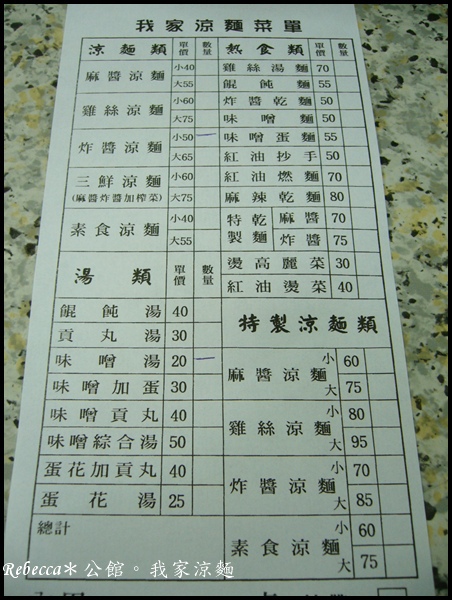 我家涼麵菜單
涼麵類 單價 數量 熱食類 單價 數量
麻醬涼麵 小40 大55
雞絲涼麵 小60 大75
炸醬涼麵 小50 大65
三鮮涼麵 (麻醬炸醬加榨菜) 小60 大75
素食涼麵 小40 大55
雞絲湯麵 70
餛飩麵 55
炸醬乾麵 50
味噌麵 50
味噌蛋麵 55
紅油抄手 50
紅油燃麵 70
麻辣乾麵 80
特製乾麵 麻醬 70
炸醬 75
燙高麗菜 30
紅油燙菜 40
湯類 單價 數量
餛飩湯 40
貢丸湯 30
味噌湯 20
味噌加蛋 30
味噌貢丸 40
味噌綜合湯 50
蛋花加貢丸 40
蛋花湯 25
總計
特製涼麵類
麻醬涼麵 小 60 大 75
雞絲涼麵 小 80 大 95
炸醬涼麵 小 70 大 85
素食涼麵 小 60 大 75
Rebecca＊公館。我家涼麵